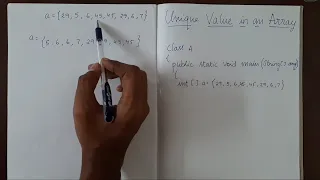 a = {29, 5, 6, 45, 45, 29, 6, 7}
a = {5, 6, 6, 7, 29, 29, 45, 45}
Unique Value in an Array
Class A
{ public static void main (String[] arg)
{ int [] a = {29, 5, 6, 45, 45, 29, 6, 7}